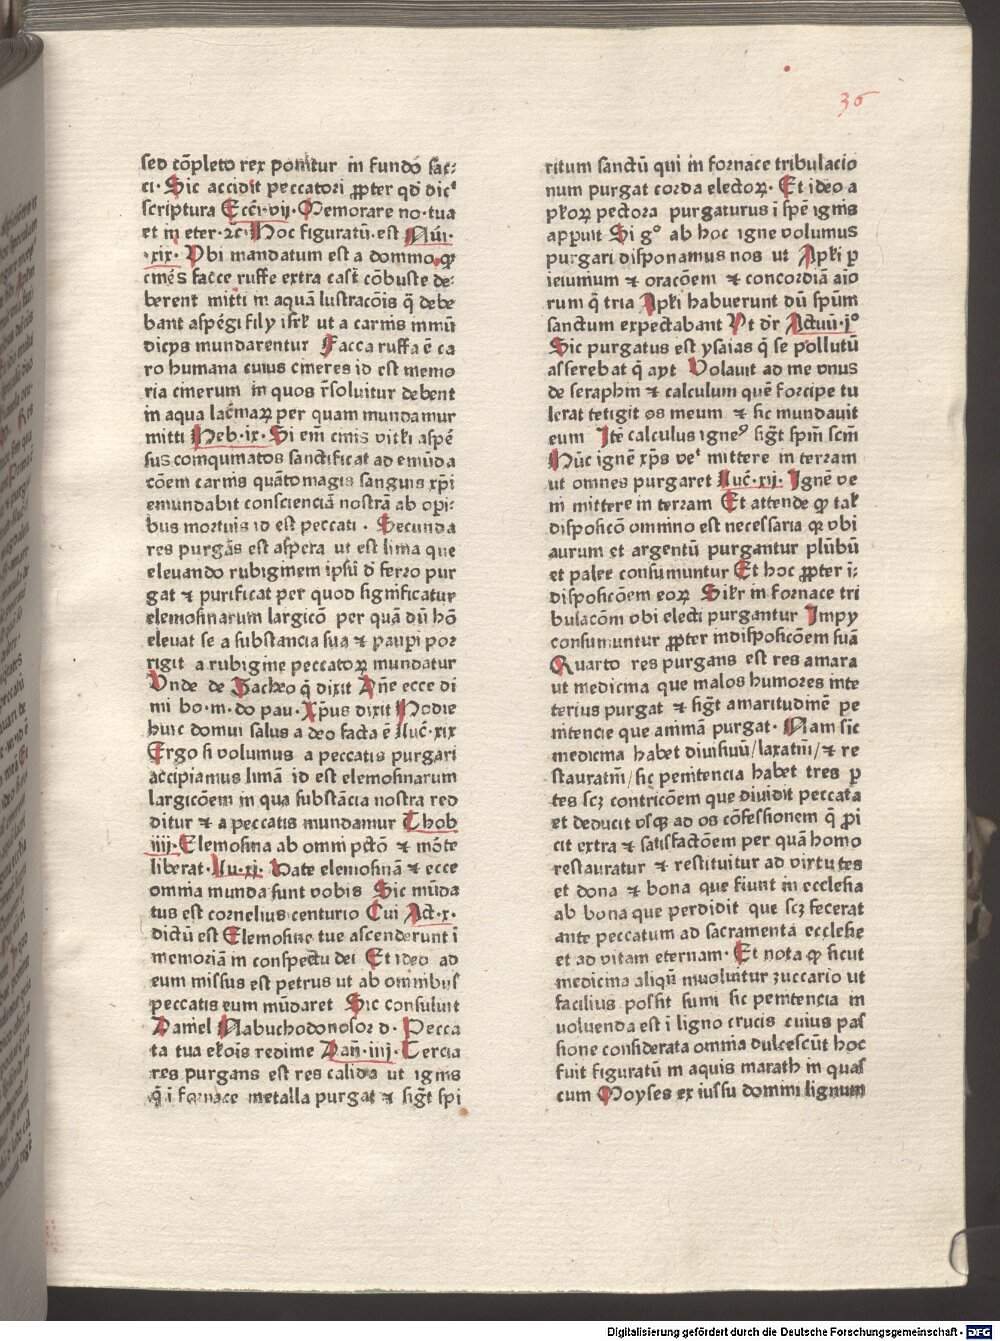 36
sed cōpleto rex ponitur in fundo sac-
ci· Sic accidit peccatori ꝓpter qd dicᵗ
scriptura Ecci·vij·Memorare no·tua
et in eter·⁊c·Hoc figuratū·est Nūi·
·xix· Vbi mandatum est a domino ꝙ
cinēs facce ruffe extra castᷓ cōbuste de-
berent mitti in aquā lustracōis q̄ debe
bant aspēgi filij isrł ut a carnis inmū
dicijs mundarentur Facca ruffa ē ca
ro humana cuius cineres id est memo
ria cinerum in quos r̄soluitur debent
in aqua lacͥmaꝝ per quam mundamur
mitti Heb·ix·Si em̄ cinis vitłi aspē
sus coinqumatos sanctificat ad emūda
cōem carnis quātomagis sanguis xp̄i
emundabit conscienciā nostrā ab opi-
bus mortuis id est peccati· Secunda
res purgās est aspera ut est lima que
eleuando rubiginem ipsiū d̄ ferro pur
gat ⁊ purificat per quod significatur
elemosinarum largicō per quā dū hō
eleuat se a substancia sua ⁊ paupi por
rigit a rubigine peccatoꝝ mundatur
Vnde de Zacheo q̄ dixit Dn̄e ecce di
mi bo·m·do pau·Xp̄us dixit Hodie
huic domui salus a deo facta ē Luc̄·xix
Ergo si volumus a peccatis purgari
accipiamus limā id est elemosinarum
largicōem in qua substācia nostra red
ditur ⁊ a peccatis mundamur Thob
iiij·Elemosina ab omni pctō ⁊ mōte
liberat·Lu·xj·Date elemosinā ⁊ ecce
omnia munda sunt vobis Sic mūda
tus est cornelius centurio Cui Act·x·
dictū est Elemosine tue ascenderunt ī
memoriā in conspectu dei Et ideo ad
eum missus est petrus ut ab omnibus
peccatis eum mūdaret Sic consuluit
Daniel Nabuchodonosor d·Pecca
ta tua ełois redime Dan̄·iiij·Tercia
res purgans est res calida ut ignis
q̄ ī fornace metalla purgat ⁊ sigᷓt spi
ritum sanctū qui in fornace tribulacio
num purgat corda electoꝝ· Et ideo a
płoꝝ pectora purgaturus ī spē ignis
appuit Si gº ab hoc igne volumus
purgari disponamus nos ut Apłi p
ieiunium ⁊ oracōem ⁊ concordiā aīo
rum q̄ tria Apłi habuerunt dū spūm
sanctum expectabant Vt dr̄ Actuū·jº
Sic purgatus est ysaias q̄ se pollutū
asserebat q̄ ayt Volauit ad me vnus
de seraphin ⁊ calculum quē forcipe tu
lerat tetigit os meum ⁊ sic mundauit
eum Itē calculus igneꝰ sigᷓt spm̄ scm̄
Hūc ignē xp̄s veᵗ mittere in terram
ut omnes purgaret Luc̄·xij· Ignē ve
ni mittere in terram Et attende ꝙ tał
disposicō omnino est necessaria qꝛ vbi
aurum et argentū purgantur plūbū
et palee consumuntur Et hoc ꝓpter ī-
disposicōem eoꝝ Siłr in fornace tri
bulacōm vbi electi purgantur Impij
consumuntur ꝓpter indisposicōem suā
Quarto res purgans est res amara
ut medicina que malos humores inte
terius purgat ⁊ sigᷓt amaritudinē pe
nitencie que animā purgat· Nam sic
medicina habet diuisiuū/laxatiū/⁊ re
stauratiū/sic penitencia habet tres p
tes scꝫ contricōem que diuidit peccata
et deducit vsqꝫ ad os cōfessionem q̄ pi
cit extra ⁊ satisfactōem per quā homo
restauratur ⁊ restituitur ad virtutes
et dona ⁊ bona que fiunt in ecclesia
ab bona que perdidit que scꝫ fecerat
ante peccatum ad sacramenta ecclesie
et ad vitam eternam· Et nota ꝙ sicut
medicina aliqn̄ inuoluitur zuccario ut
facilius possit sumi sic penitencia in
uoluenda est ī ligno crucis cuius pas
sione considerata omnia dulcescūt hoc
fuit figuratū in aquis marath in quas
cum Moyses ex iussu domini lignum
Digitalisierung gefördert durch die Deutsche Forschungsgemeinschaft - DFG